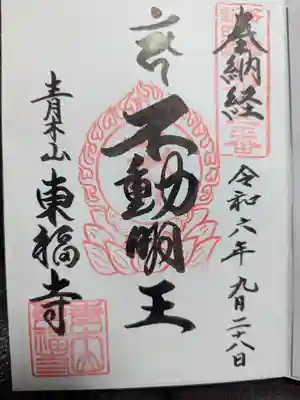 奉納経
令和六年九月二十八日
不動明王
青木山
東福寺